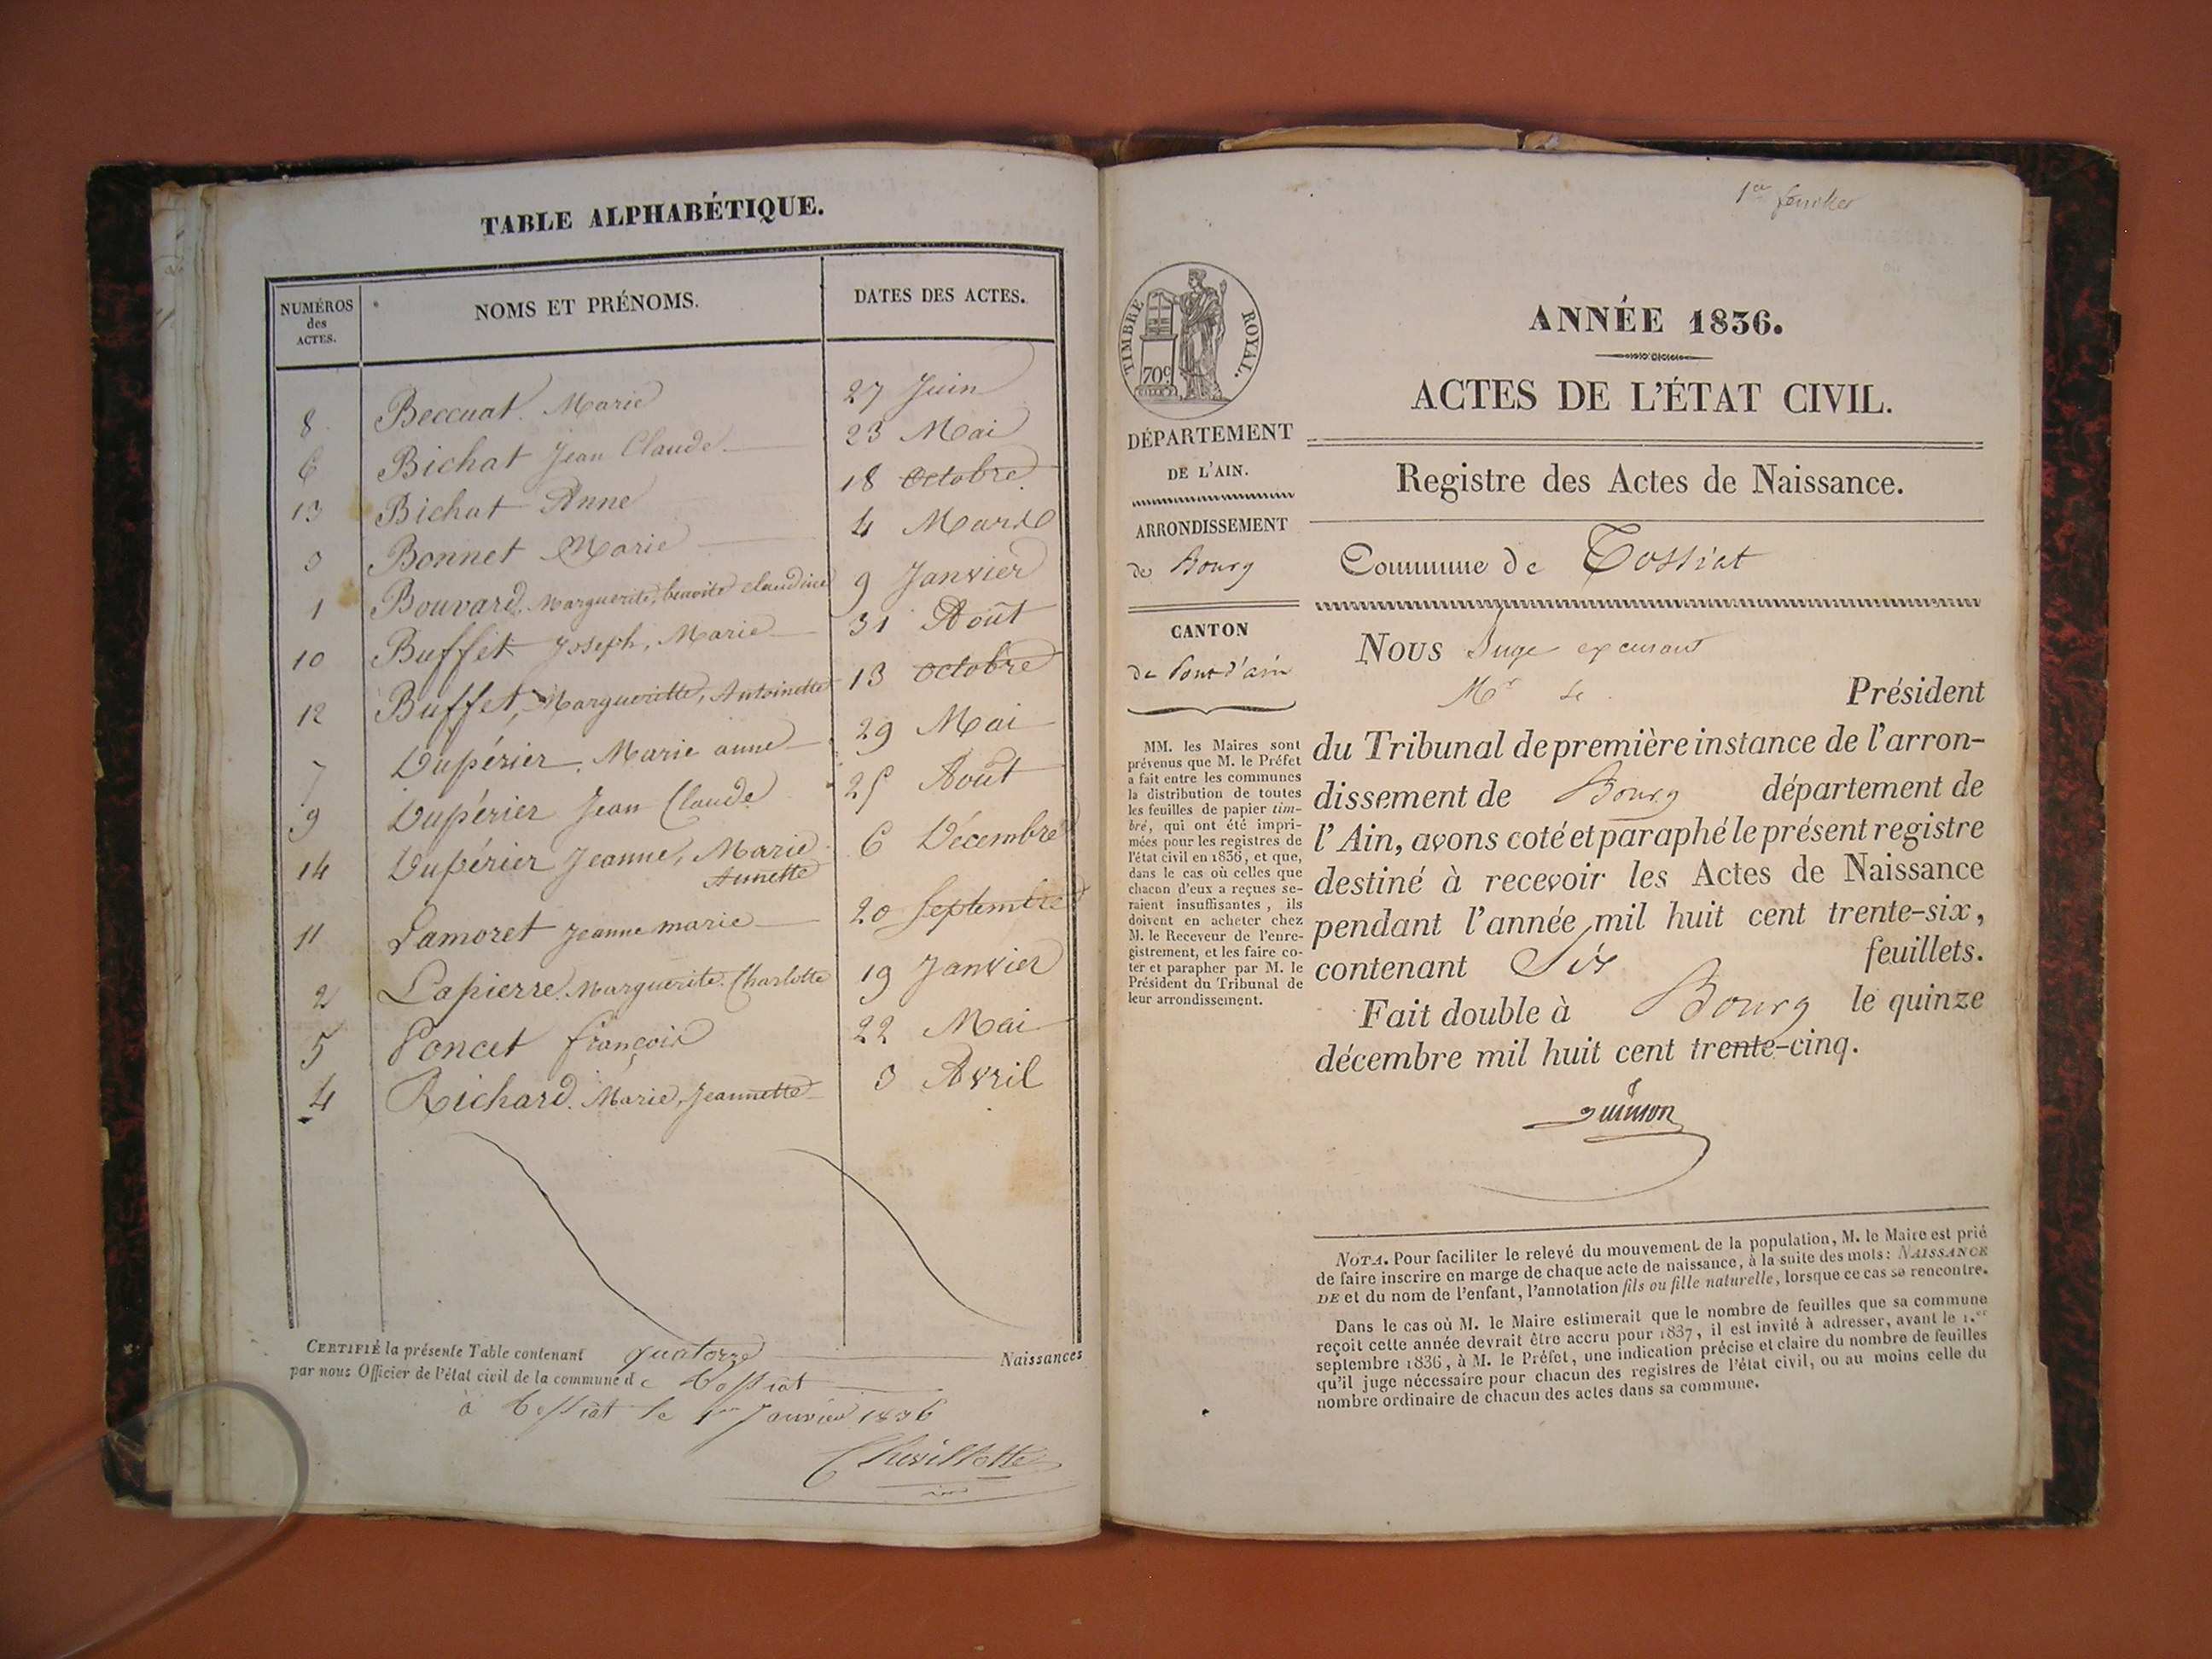 TABLE ALPHABÉTIQUE.
NUMÉROS
des
ACTES.
NOMS ET PRÉNOMS.
DATES DES ACTES.
8 Beccuat. Marie 27 Juin
6 Bichat Jean Claude 23 Mai
13 Bichat Anne 18 Octobre
3 Bonnet Marie 4 Mars
1 Bouvard, Marguerite, benoite claudine 9 Janvier
10 Buffet Joseph, Marie 31 Août
12 Buffet, Margueritte, Antoinette 13 Octobre
7 Dupérier, Marie anne 29 Mai
9 Dupérier Jean Claude 25 Août
14 Dupérier Jeanne, Marie 6 Décembre
Annette
11 Lamoret Jeanne marie 20 Septembre
2 Lapierre. Marguerite. Charlotte 19 Janvier
5 Poncet françois 22 Mai
4 Richard. Marie, Jeannette 3 Avril
CERTIFIÉ la présente Table contenant quatorze Naissances
par nous Officier de l'état civil de la commune de Tossiat
à Tossiat le 1er Janvier 1836
Chevillotte
1er feuillet
TIMBRE ROYAL.
70c
DÉPARTEMENT
DE L'AIN.
ARRONDISSEMENT
de Bourg
CANTON
de Pont d'ain
MM. les Maires sont
prévenus que M. le Préfet
a fait entre les communes
la distribution de toutes
les feuilles de papier tim-
bré, qui ont été impri-
mées pour les registres de
l'état civil en 1836, et que,
dans le cas où celles que
chacun d'eux a reçues se-
raient insuffisantes, ils
doivent en acheter chez
M. le Receveur de l'enre-
gistrement, et les faire co-
ter et parapher par M. le
Président du Tribunal de
leur arrondissement.
ANNÉE 1836.
ACTES DE L'ÉTAT CIVIL.
Registre des Actes de Naissance.
Commune de Tossiat
NOUS Juge
Mr le Président
du Tribunal de première instance de l'arron-
dissement de Bourg département de
l'Ain, avons coté et paraphé le présent registre
destiné à recevoir les Actes de Naissance
pendant l'année mil huit cent trente-six,
contenant Six feuillets.
Fait double à Bourg le quinze
décembre mil huit cent trente-cinq.
NOTA. Pour faciliter le relevé du mouvement de la population, M. le Maire est prié
de faire inscrire en marge de chaque acte de naissance, à la suite des mots: NAISSANCE
DE et du nom de l'enfant, l'annotation fils ou fille naturelle, lorsque ce cas se rencontre.
Dans le cas où M. le Maire estimerait que le nombre de feuilles que sa commune
reçoit cette année devrait être accru pour 1837, il est invité à adresser, avant le 1.er
septembre 1836, à M. le Préfet, une indication précise et claire du nombre de feuilles
qu'il juge nécessaire pour chacun des registres de l'état civil, ou au moins celle du
nombre ordinaire de chacun des actes dans sa commune.